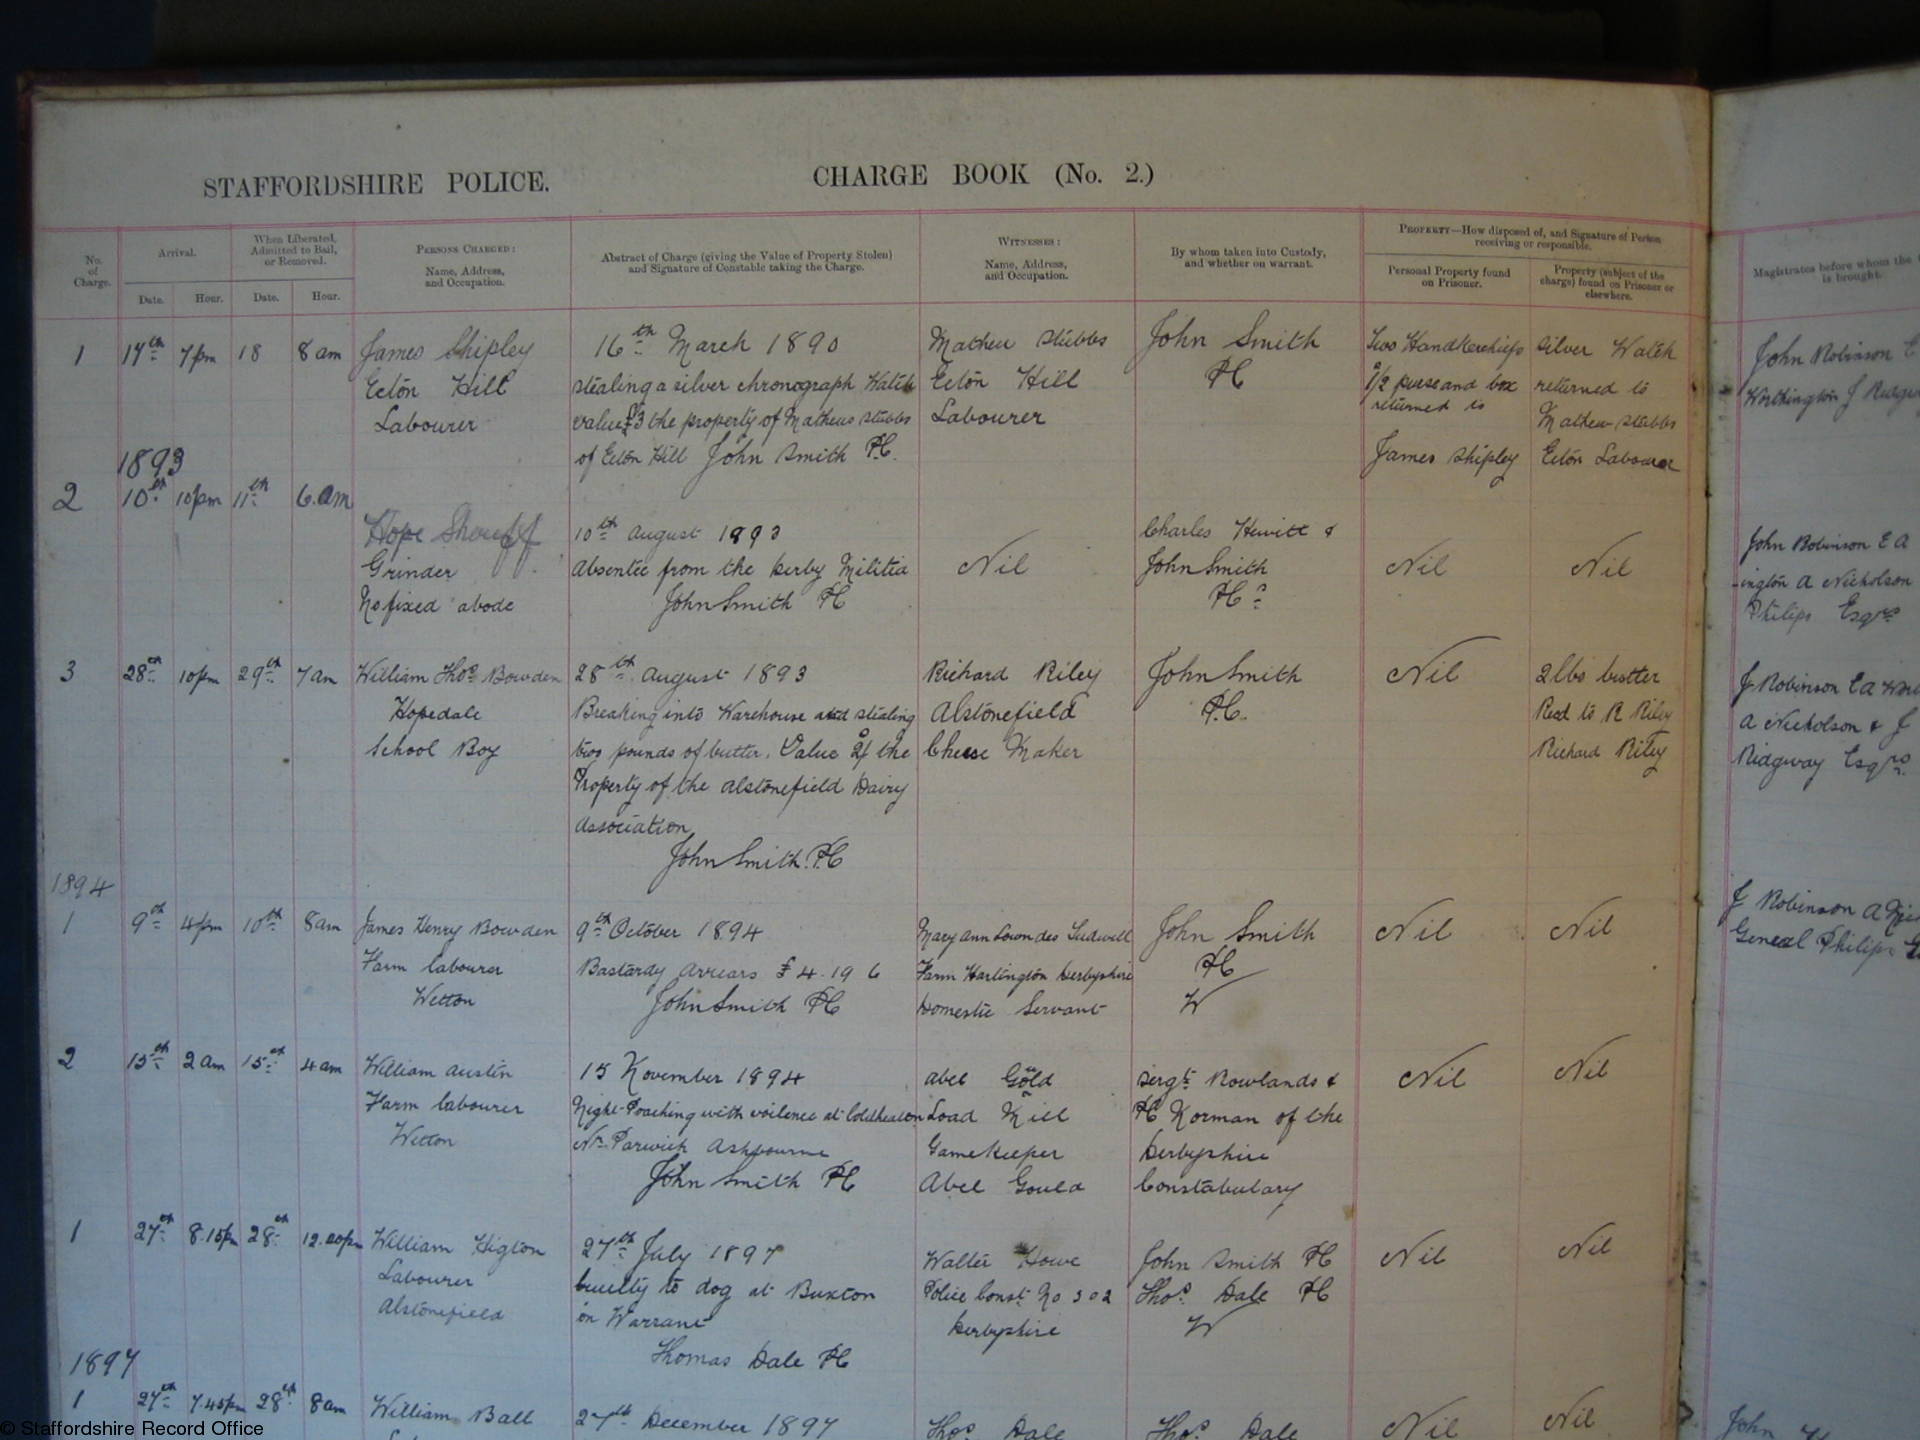 STAFFORDSHIRE POLICE. CHARGE BOOK (No. 2.)
No. of Charge.
Arrival.
Date. Hour.
When Liberated, Admitted to Bail, or Removed.
Date. Hour.
PERSONS CHARGED:
Name, Address,
and Occupation.
Abstract of Charge (giving the Value of Property Stolen)
and Signature of Constable taking the Charge.
WITNESSES:
Name, Address,
and Occupation.
By whom taken into Custody,
and whether on warrant.
PROPERTY—How disposed of, and Signature of Person
receiving or responsible.
Personal Property found
on Prisoner.
Property (subject of the
charge) found on Prisoner or
elsewhere.
Magistrates before whom the
is brought.
1 17th 7pm 18 8 am
James Shipley
Ecton Hill
Labourer
16th March 1890
stealing a silver chronograph Watch
value £3 the property of Mathew Stubbs
of Ecton Hill John Smith PC.
Mathew Stubbs
Ecton Hill
Labourer
John Smith
PC
Two Handkerchiefs
purse and box
returned to
James Shipley
Silver Watch
returned to
Mathew Stubbs
Ecton Labourer
John Robinson
Worthington J
1893
2 10th 10pm 11th 6.am
Hope Sheriff
Grinder
No fixed abode
10th August 1893
Absentee from the Derby Militia
John Smith PC
Nil
Charles Hewitt &
John Smith
PCs
Nil
Nil
John Robinson E A
-ington A Nicholson
Philips Esqrs
3 28th 10pm 29th 7am
William Thos Bowden
Hopedale
School Boy
28th August 1893
Breaking into Warehouse and stealing
two pounds of butter. Value 2/ the
Property of the Alstonefield Dairy
Association
John Smith. PC
Richard Riley
Alstonefield
Cheese Maker
John Smith
P.C.
Nil
2lbs butter
Recd to R Riley
Richard Riley
J Robinson E A
A Nicholson & J
Ridgway Esqrs
1894
1 9th 4pm 10th 8am
James Henry Bowden
Farm labourer
Wetton
9th October 1894
Bastardy Arrears £4.19 6
John Smith PC
Mary Ann Lowndes Ludwell
Farm Hartington Derbyshire
Domestic Servant
John Smith
PC
W
Nil
Nil
J Robinson A
General Philips
2 15th 2am 15th 4am
William Austin
Farm labourer
Wetton
15 November 1894
Night-Poaching with voilence at Coldheaton
Nr Parwich Ashbourne
John Smith PC
Abel Gold
Load Mill
Gamekeeper
Abel Gould
Sergt Rowlands &
PC Korman of the
Derbyshire
Constabulary
Nil
Nil
1 27th 8.15pm 28th 12.20pm
William Higton
Labourer
Alstonefield
27th July 1897
Cruelty to dog at Buxton
on Warrant
Thomas Dale PC
Walter Howe
Police Const. No 302
Derbyshire
John Smith PC
Thos. Dale PC
W
Nil
Nil
1897
1 27th 7.45pm 28th 8am
William Ball
27th December 1897
Thos Dale
Thos. Dale
Nil
Nil
John
© Staffordshire Record Office